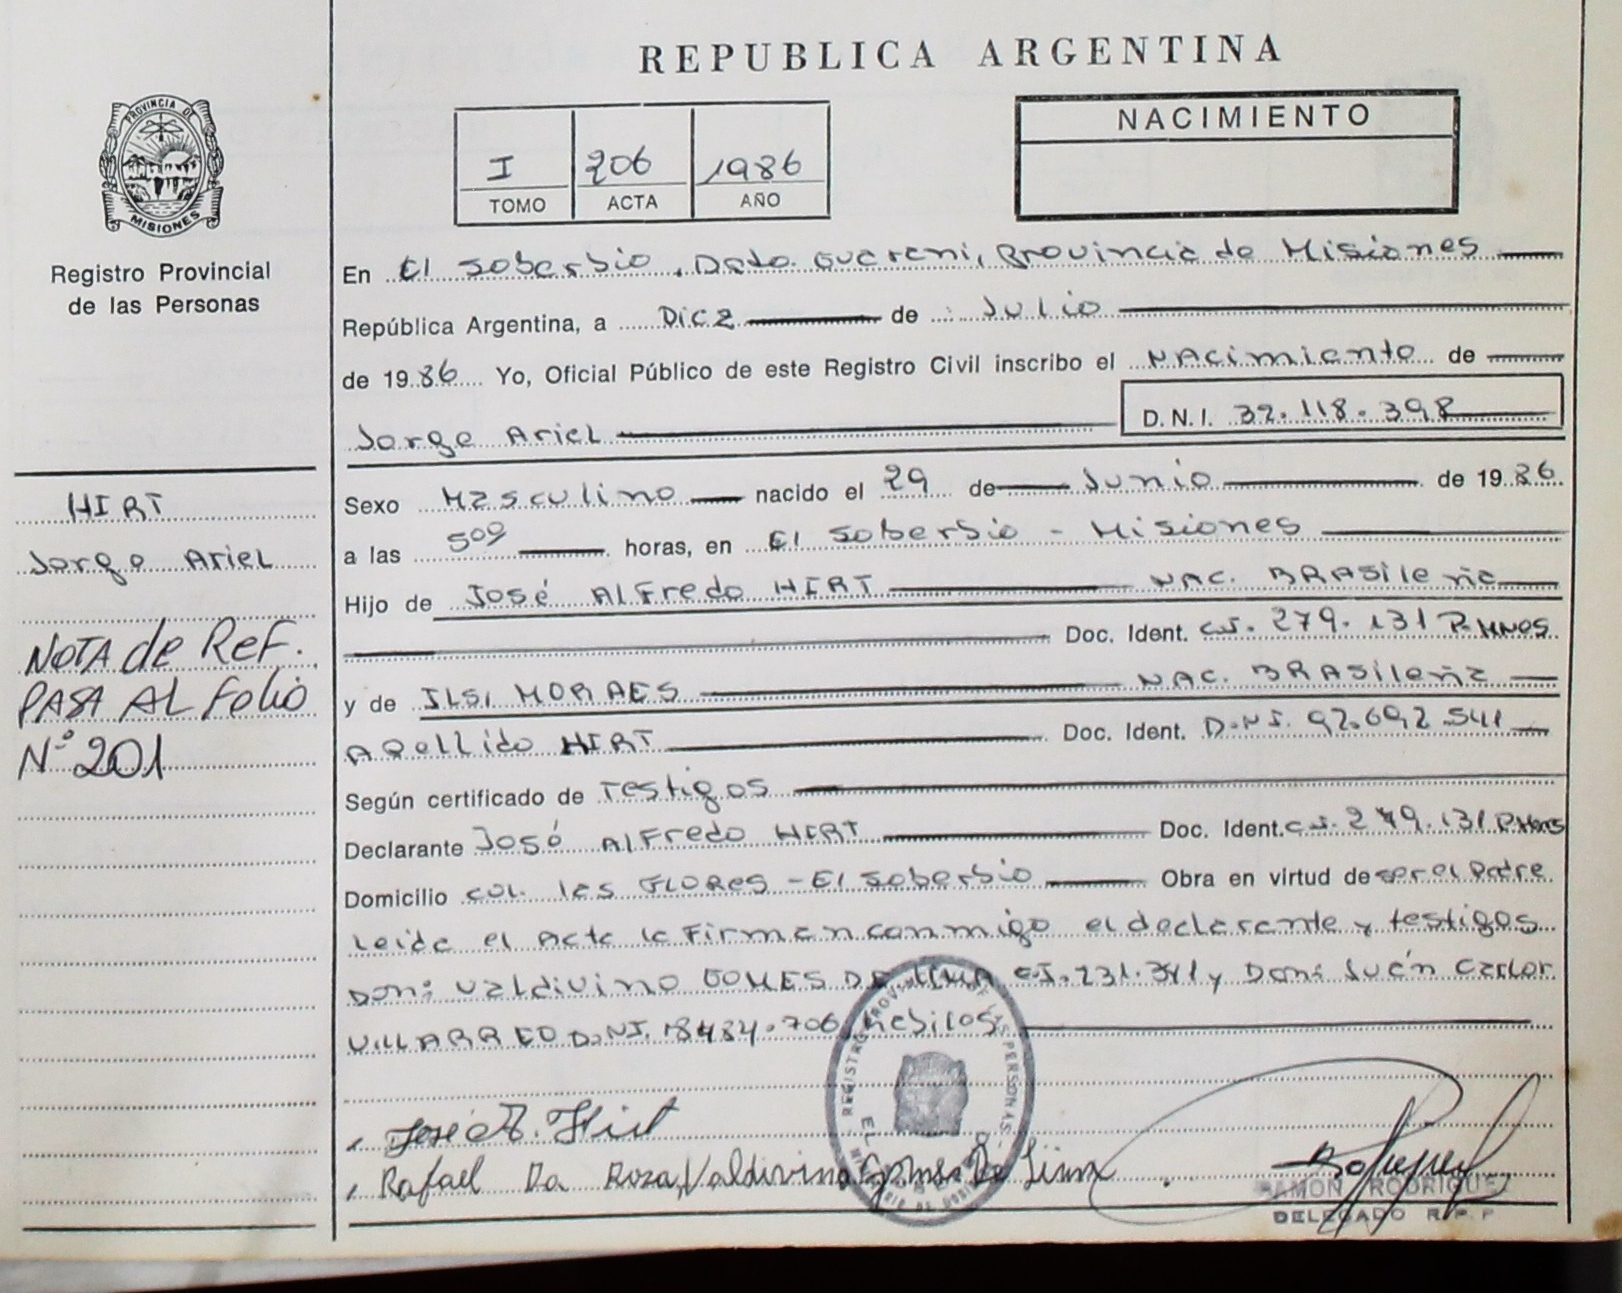 REPUBLICA ARGENTINA
PROVINCIA DE
MISIONES
Registro Provincial
de las Personas
I 206 1986
TOMO ACTA AÑO
NACIMIENTO
En El Soberbio, Dpto. Guarani, Provincia de Misiones
República Argentina, a Diez de Julio
de 1986 Yo, Oficial Público de este Registro Civil inscribo el NACimiento de
Jorge Ariel D.N.I. 32.118.398
Sexo Masculino nacido el 29 de Junio de 1986
a las 5°° horas, en El Soberbio - Misiones
Hijo de José Alfredo HIRT NAC. BRASileña
Doc. Ident. C.I. 279.131 P. MNES
y de ILSI MORAES NAC. BRASileña
Apellido HIRT Doc. Ident. D.N.I. 92.692.541
Según certificado de Testigos
Declarante José Alfredo HIRT Doc. Ident. C.I. 279.131 P. Mnes
Domicilio Col. las FLORes - El Soberbio Obra en virtud de ser el Padre
Leida el Acta la Firman conmigo el declarante y testigos
Don: Valdivino GOMES DE LIMA C.I. 231.341 y Don: Juan Carlos
VILLARREO D.N.I. 18434.706 habiles
HIRT
Jorge Ariel
NOTA de Ref.
PASA AL Folio
N° 201
José A. Hirt
Rafael Da Roza, Valdivino Gomes De Lima
REGISTRO PROVINCIAL DE LAS PERSONAS
RAMON RODRIGUEZ
DELEGADO R.P.P